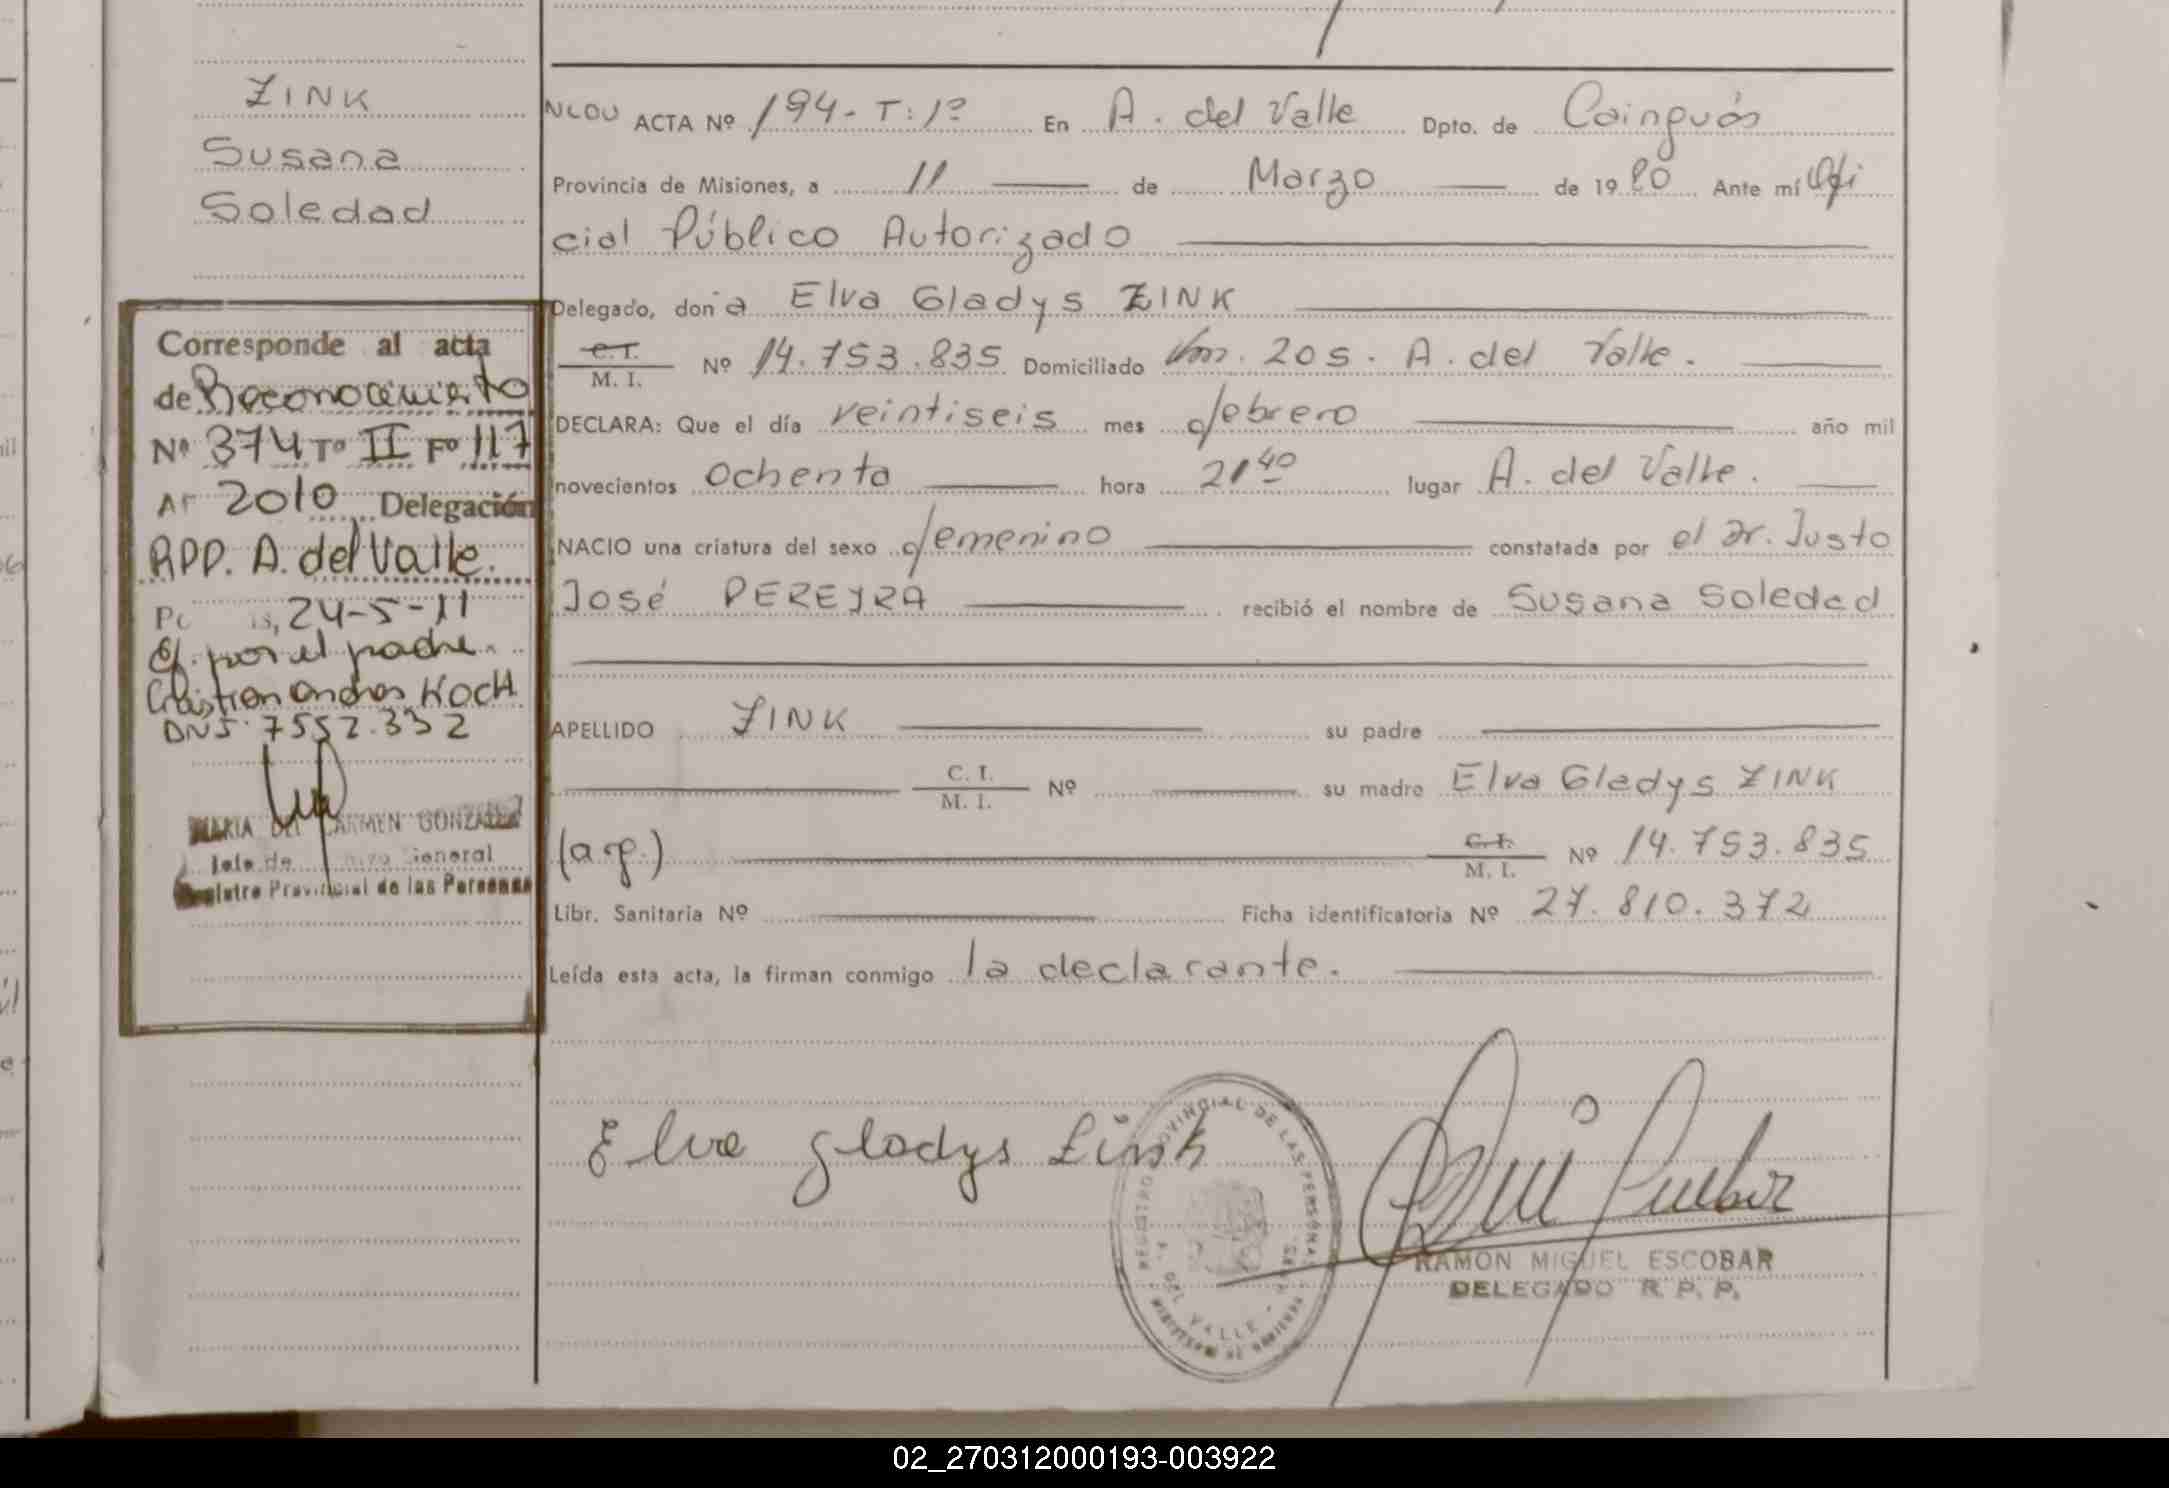 ZINK
Susana
Soledad
Corresponde al acta
de Reconocimiento
Nº 374 Tº II Fº 117
Aº 2010 Delegación
RPP. A. del Valle.
24-5-11
por el padre.
Cristian Andres KOCH
DNI. 7552.332
MARIA DEL CARMEN GONZALEZ
Jefe de General
Registro Provincial de las Personas
ACTA Nº 194 - T: 1º En A. del Valle Dpto. de Cainguás
Provincia de Misiones, a 11 de Marzo de 1980 Ante mí Ofi
cial Público Autorizado
Delegado, don a Elva Gladys ZINK
C. I.
M. I. Nº 14.753.835 Domiciliado Km. 205. A. del Valle.
DECLARA: Que el día veintiseis mes febrero año mil
novecientos ochenta hora 21 40 lugar A. del Valle.
NACIO una criatura del sexo femenino constatada por el Dr. Justo
José PEREYRA recibió el nombre de Susana Soledad
APELLIDO ZINK su padre
C. I.
M. I. Nº su madre Elva Gladys ZINK
(arg.) C. I.
M. I. Nº 14.753.835
Libr. Sanitaria Nº Ficha identificatoria Nº 27.810.372
Leída esta acta, la firman conmigo la declarante.
Elva Gladys Zink
REGISTRO PROVINCIAL DE LAS PERSONAS
A. DEL VALLE
RAMON MIGUEL ESCOBAR
DELEGADO R. P. P.
02_270312000193-003922